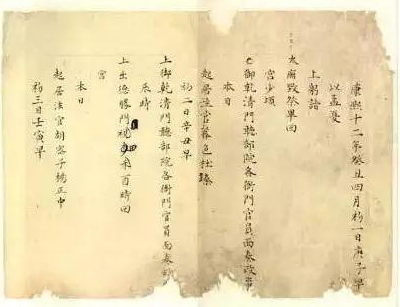 康熙十二年癸丑四月初一日庚子早
以孟夏
上躬詣
太廟致祭畢回
宮少頃
上御乾清門聽部院各衙門官員面奏政事
本日
起居注官莫色杜臻
初二日辛丑早
上御乾清門聽部院各衙門官員面奏政事
辰時
上出德勝門 禾百時回
宮
本日
起居注官胡密子楊正中
初三日壬寅早